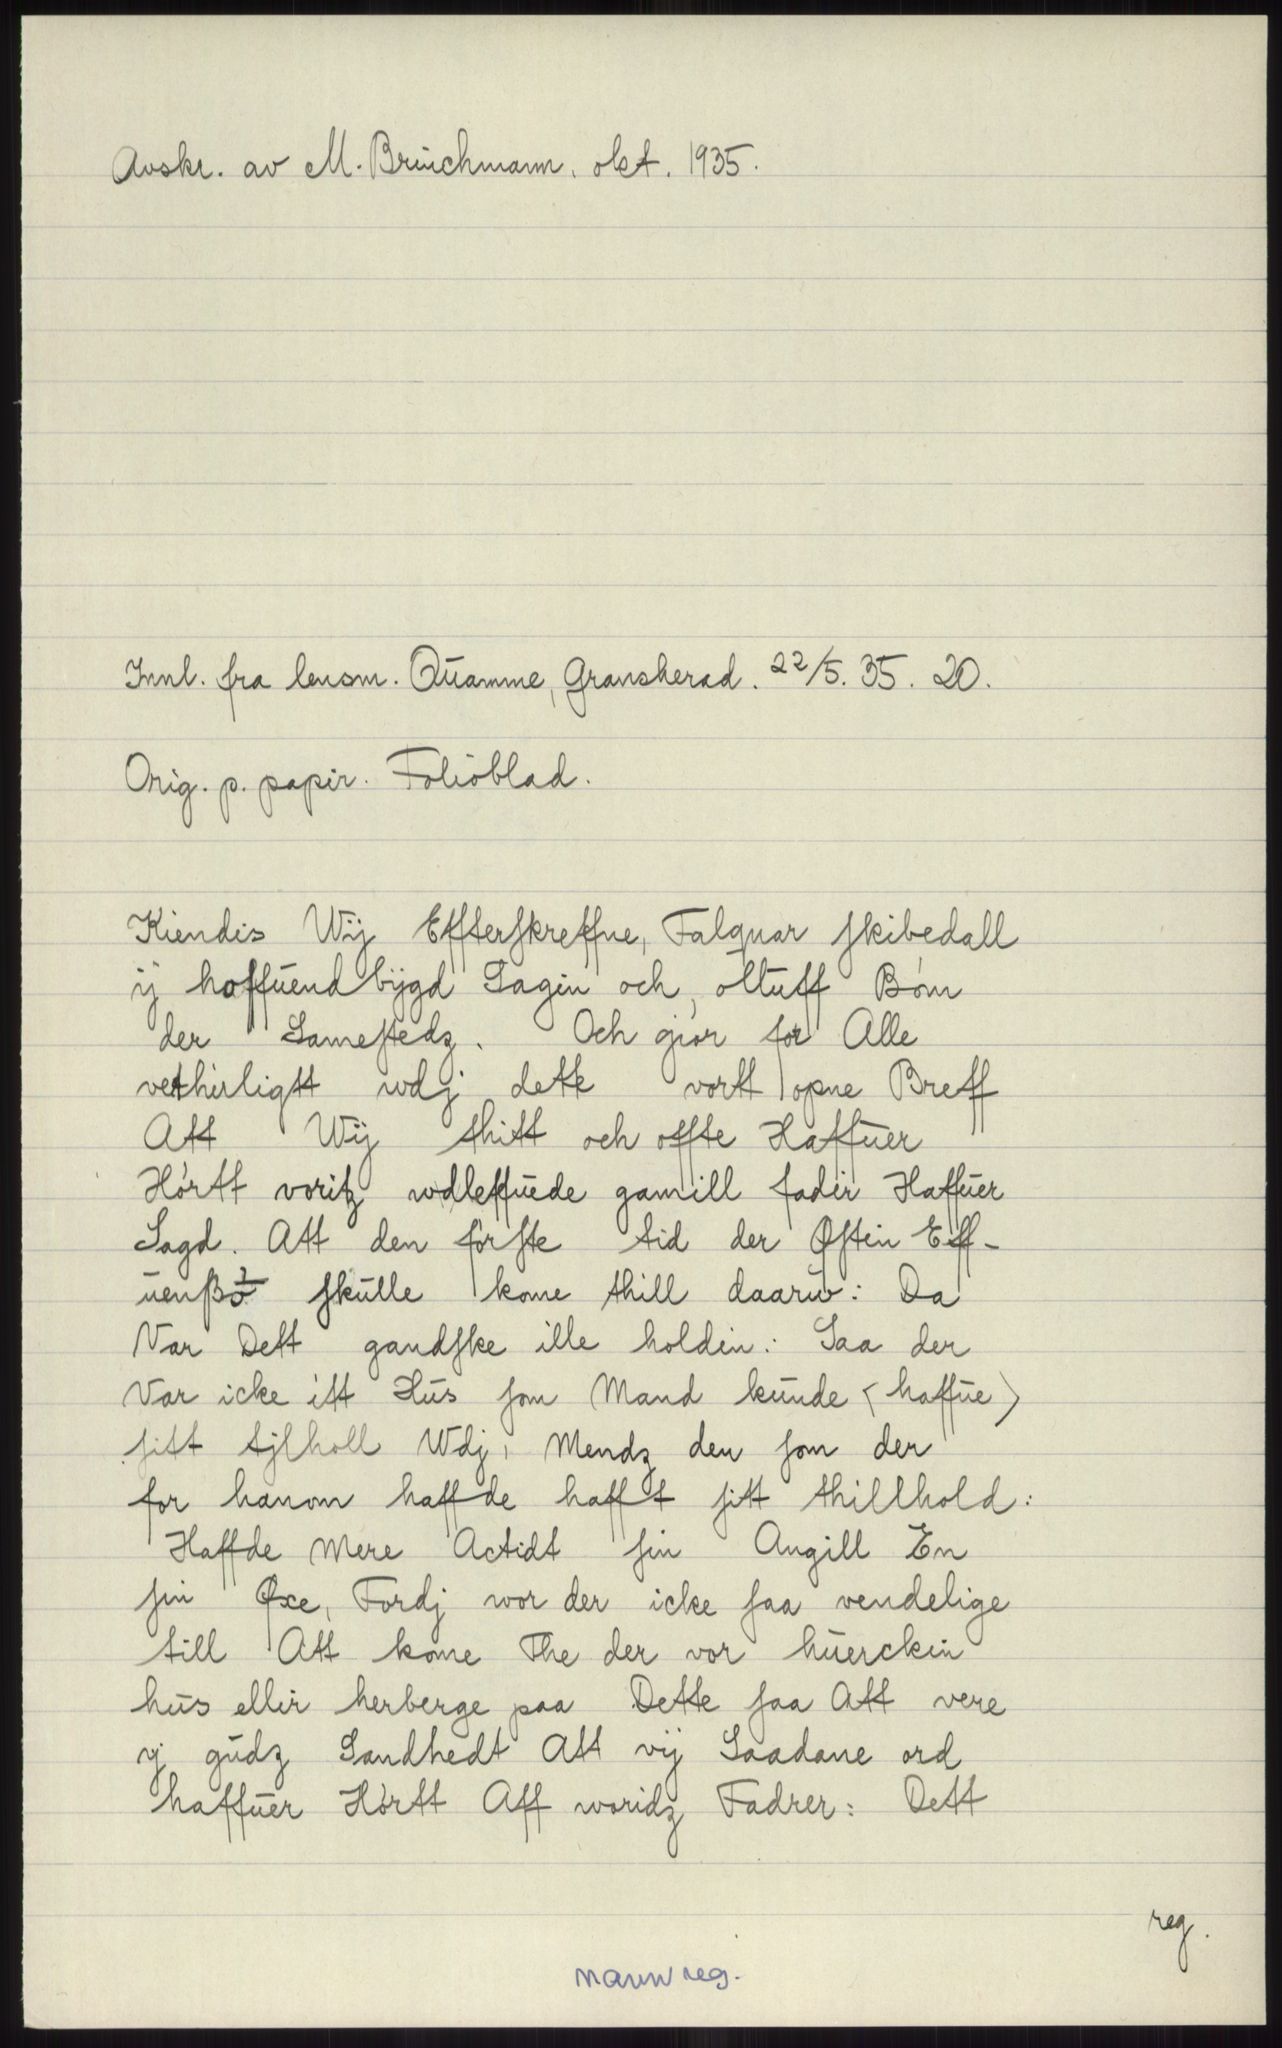 Avskr. av M. Brinchmann, okt. 1935.
Innl. fra lensm. Quamme, Gransherad. 22/5. 35. 20.
Orig. p. papir. Folioblad.
Kiendis Wij Effterskreffne, Falquar skibedall
ij hoffuend bijgd Sagin och, olluff Bøm
der Samestedz. Och giør for Alle
vethirligtt wdj dette vortt opne Breff
Att Wij thitt och offte Haffuer
Hørtt voritz wdleffuede gamill fadir Haffuer
Sagd. Att den første tid der Østin Eff-
uenßø skulle kome thill daarw: Da
Var Dett gandske ille holdin: Saa der
Var icke itt Hus som Mand kunde <haffue>
sitt tijlholl Wdj, Mendz den som der
for hanom haffde hafft sitt thillhold:
Haffde Mere Actidt sin Angill En
sin Øxe, Fordj wor der icke saa vendelige
till Att kome The der vor huerckin
hus ellir herberge paa Dette saa Att vere
ij gudz Sandhedt Att vij Saadane ord
haffuer Hørtt Aff woridz Fadrer: Dett
reg.
navnreg.